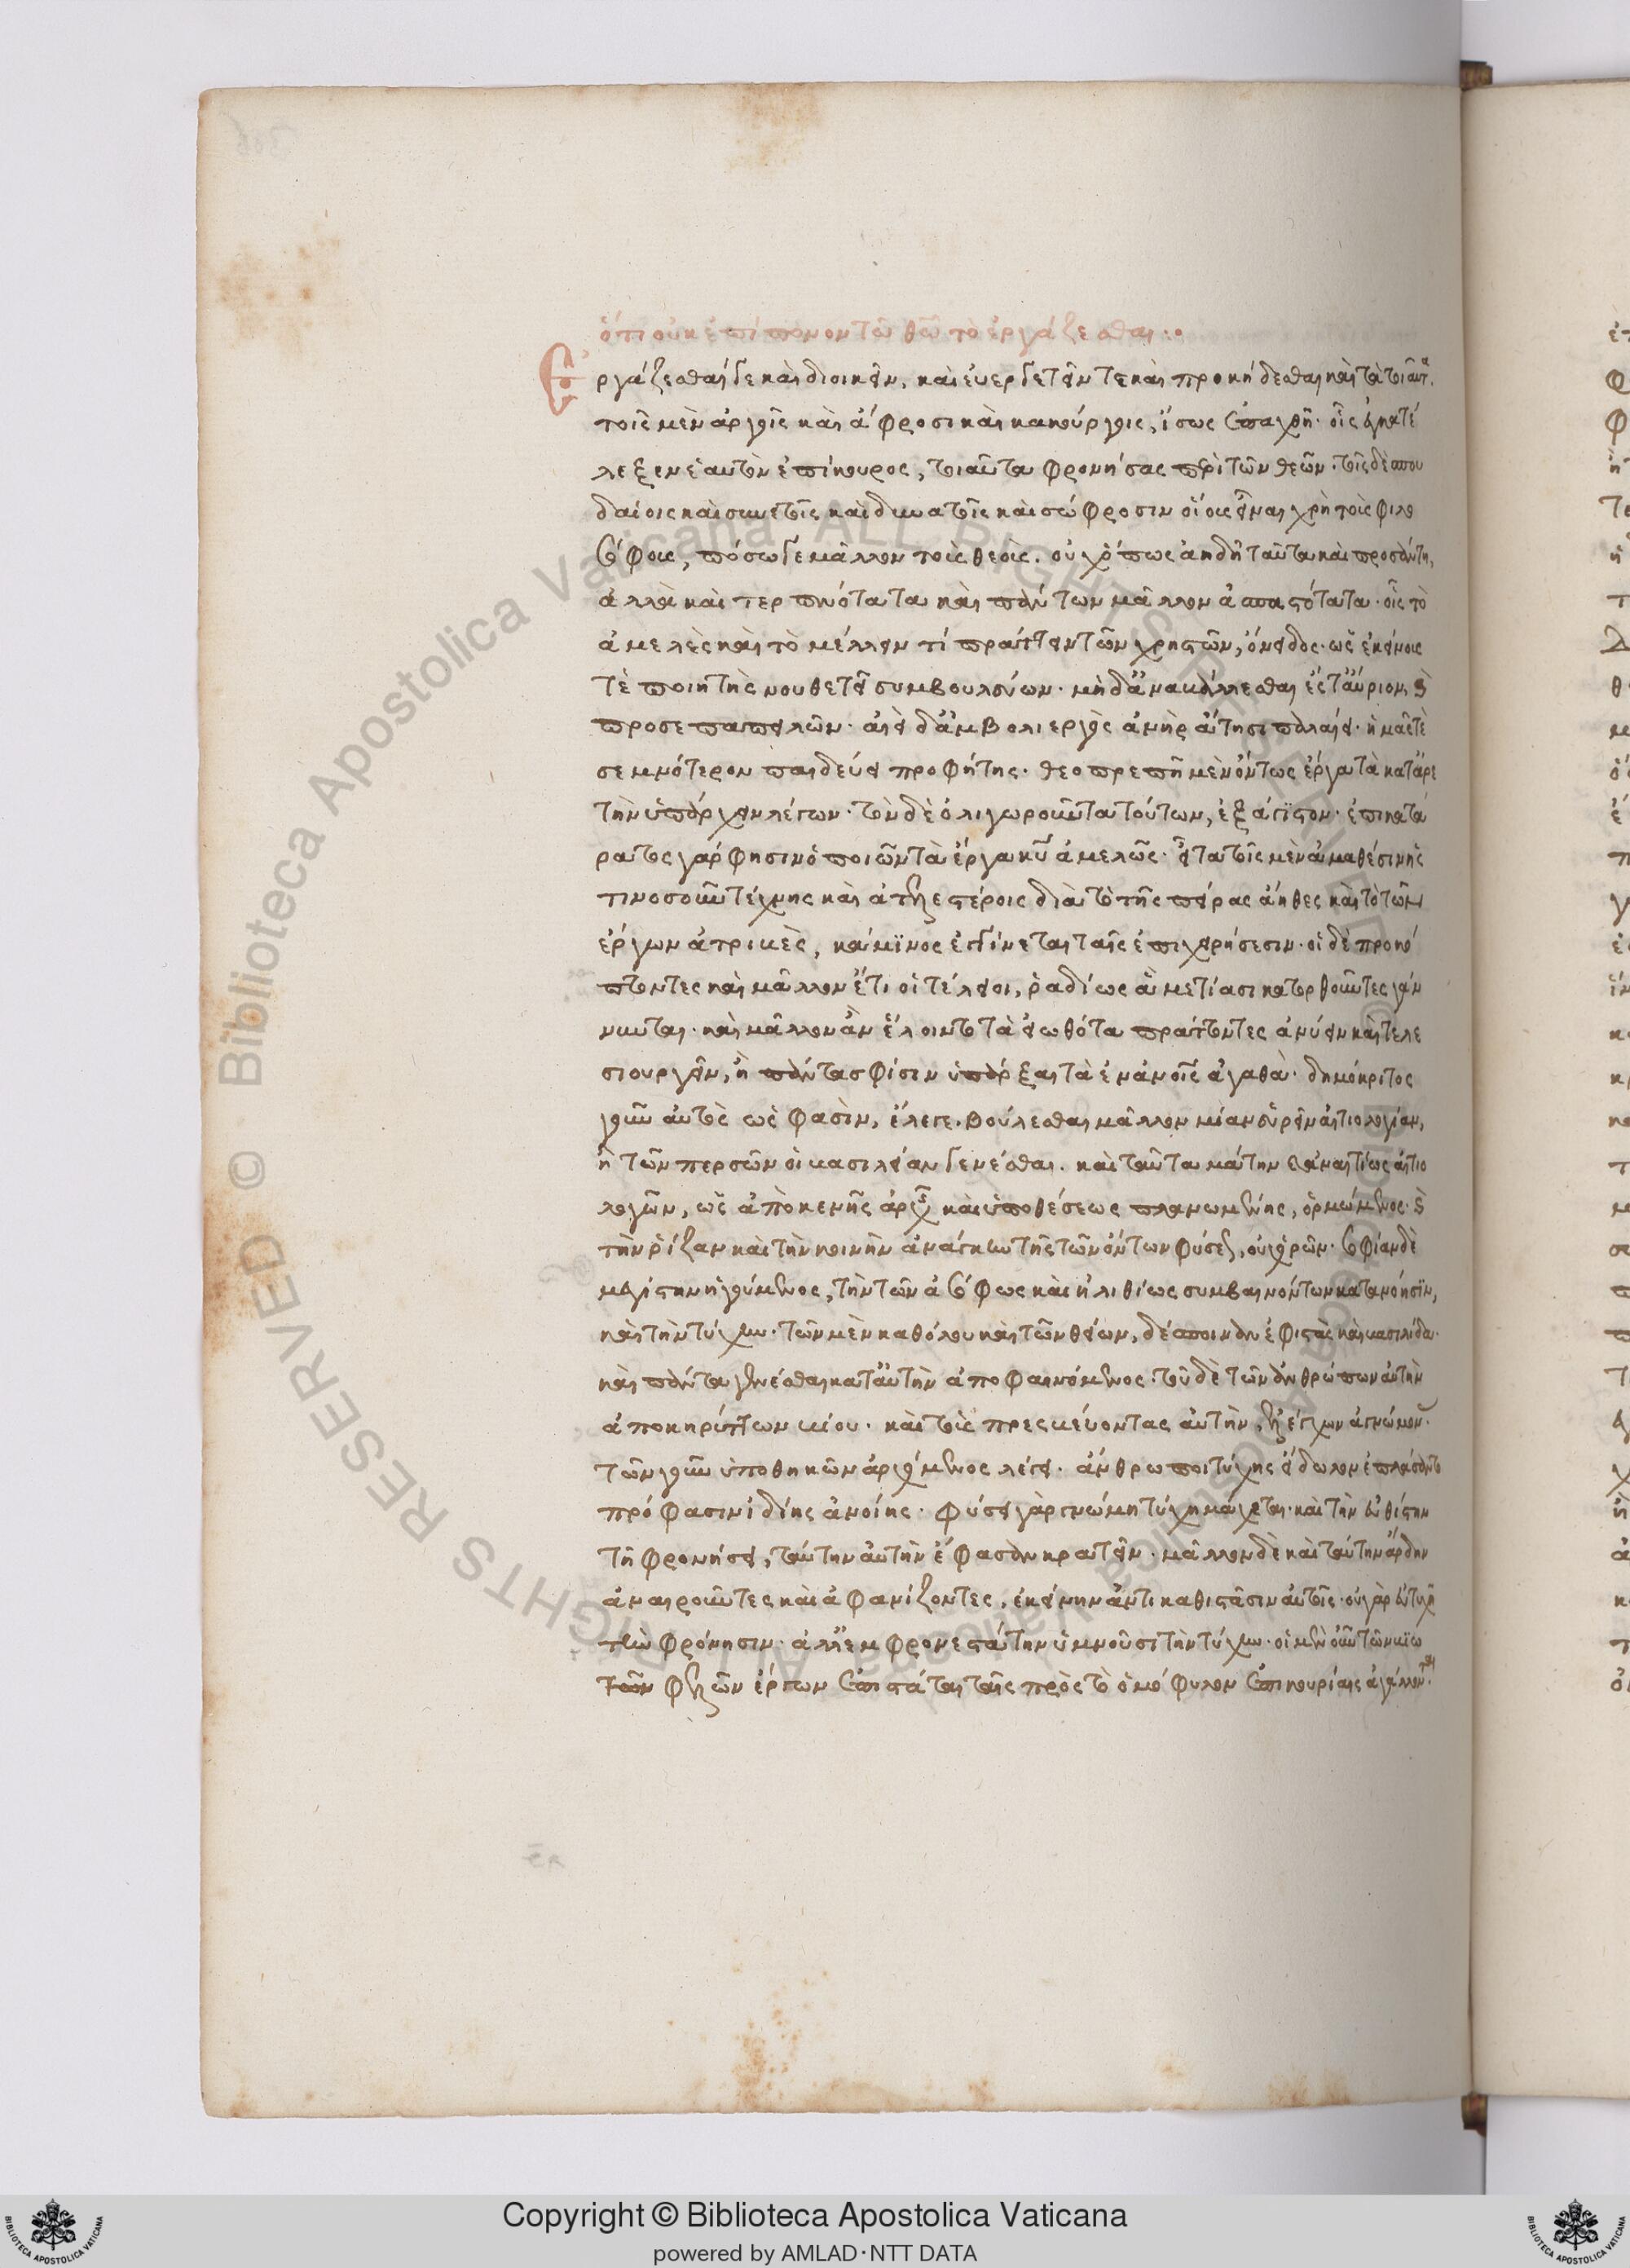 ὅτι οὐκ ἐπίπονον τῶ θεῶ τὸ ἐργάζεσθαι:
Ἐργάζεσθαί γε καὶ διοικεῖν, καὶ εὐεργετεῖν τε καὶ προκήδεσθαι καὶ τὰ τοιαῦτα
τοῖς μὲν ἀργοῖς καὶ ἄφροσι καὶ κακούργοις, ἴσως ἐπαχθῆ. οἷς ἐγκατέ
λεξεν ἑαυτὸν ἐπίκουρος, τοιαῦτα φρονήσας περὶ τῶν θεῶν. τοῖς δὲ σπου
δαίοις καὶ συνετοῖς καὶ δυνατοῖς καὶ σώφροσιν οἵους εἶναι χρὴ τοὺς φιλο
σόφους, πόσω γε μᾶλλον τοὺς θεοὺς. οὐχ ὅπως ἀηδῆ ταῦτα καὶ προσάντη,
ἀλλὰ καὶ τερπνότατα καὶ πάντων μᾶλλον ἀσπαστότατα. οἷς τὸ
ἀμελὲς καὶ τὸ μέλλειν τί πράττειν τῶν χρηστῶν, ὄνειδος. ὡς ἐκείνους
τὲ ποιητὴς νουθετεῖ συμβουλεύων. μὴ δ' ἀνακάλλεσθαι ἔς τ' αὔριον,
προσεπαπειλῶν. αἰεὶ δ' ἀμβολιεργὸς ἀνὴρ ἄτησι παλαίει. ἡμᾶς τὲ
σεμνότερον παιδεύει προφήτης. θεοπρεπῆ μὲν ὄντως ἔργα τὰ κατ' ἀρε
τὴν ὑπάρχειν λέγων. τὸν δὲ ὀλιγωροῦντα τούτων, ἐξάγιστον. ἐπικατά
ρατος γάρ φησιν ὁ ποιῶν τὰ ἔργα κυρίου ἀμελῶς. εἶτα τοῖς μὲν ἀμαθέσιν ἧς
τινοσοῦν τέχνης καὶ ἀτελεστέροις διὰ τὸ τῆς πείρας ἄηθες καὶ τὸ τῶν
ἔργων ἀτριβὲς, κάματος ἐγγίνεται ταῖς ἐπιχειρήσεσιν. οἱ δὲ προκό
πτοντες καὶ μᾶλλον ἔτι οἱ τέλειοι, ῥαδίως ἃ μετίασι κατορθοῦντες γάν
νυνται. καὶ μᾶλλον ἂν ἕλοιντο τὰ εἰωθότα πράττοντες ἀνύειν καὶ τελε
σιουργεῖν, ἢ πάντα σφίσιν ὑπάρξαι τὰ ἐν ἀνοῖς ἀγαθὰ. δημόκριτος
γοῦν αὐτὸς ὡς φασὶν, ἔλεγε. βούλεσθαι μᾶλλον μίαν εὑρεῖν αἰτιολογίαν,
ἢ τῶν περσῶν οἱ βασιλείαν γενέσθαι. καὶ ταῦτα μάτην καὶ ἀναιτίως αἰτιο
λογῶν, ὡς ἀπὸ κενῆς ἀρχῆς καὶ ὑποθέσεως πλανωμένης, ὁρμώμενος.
τὴν ῥίζαν καὶ τὴν κοινὴν ἀνάγκην τῆς τῶν ὄντων φύσεως, οὐχ ὁρῶν. σοφίαν δὲ
μεγίστην ἡγούμενος, τὴν τῶν ἀσόφως καὶ ἠλιθίως συμβαινόντων κατανόησιν,
καὶ τὴν τύχην. τῶν μὲν καθόλου καὶ τῶν θείων, δέσποιναν ἐφιστὰς καὶ βασιλίδα.
καὶ πάντα γενέσθαι κατ' αὐτὴν ἀποφαινόμενος. τοῦ δὲ τῶν ἀνθρώπων αὐτὴν
ἀποκηρύττων βίου. καὶ τοὺς πρεσβεύοντας αὐτὴν, ἐξελέγχων ἀγνώμονας.
τῶν γοῦν ὑποθηκῶν ἀρχόμενος λέγει. ἄνθρωποι τύχης εἴδωλον ἐπλάσαντο
πρόφασιν ἰδίης ἀνοίης. φύσει γὰρ γνώμη τύχη μάχεται. καὶ τὴν ἐχθίστην
τῆ φρονήσει, ταύτην αὐτὴν ἔφασαν κρατεῖν. μᾶλλον δὲ καὶ ταύτην ἄρδην
ἀναιροῦντες καὶ ἀφανίζοντες, ἐκείνην ἀντικαθιστᾶσιν αὐτοῖς. οὐ γὰρ εὐτυχῆ
τὴν φρόνησιν. ἀλλ' ἐμφρονεστάτην ὑμνοῦσι τὴν τύχην. οἱ μὲν οὖν τῶν βιω
φελῶν ἔργων ἐπιστάται ταῖς πρὸς τὸ ὁμόφυλον ἐπικουρίαις ἀγάλλονται.
Copyright © Biblioteca Apostolica Vaticana
powered by AMLAD·NTT DATA